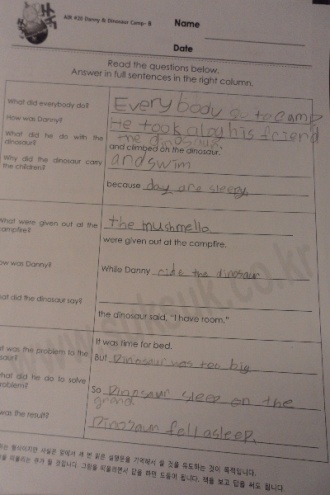 AIR 420 Danny & Dinosaur Camp- 8
Name
Date
Read the questions below.
Answer in full sentences in the right column.
What did everybody do?
Everybody go to camp
How was Danny?
He took alog his friend
What did he do with the dinosaur?
the dinosaur.
and climbed on the dinosaur.
Why did the dinosaur carry the children?
and swim
because day are sleepy.
What were given out at the
campfire?
the mushmello
were given out at the campfire.
ow was Danny?
While Danny ride the dinosaur
at did the dinosaur say?
the dinosaur said, "I have room."
It was time for bed.
t was the problem to the
saur?
But Dinosaur was too big
hat did he do to solve
roblem?
So Dinosaur sleep on the
grand
was the result?
Dinosaur fell asleep.